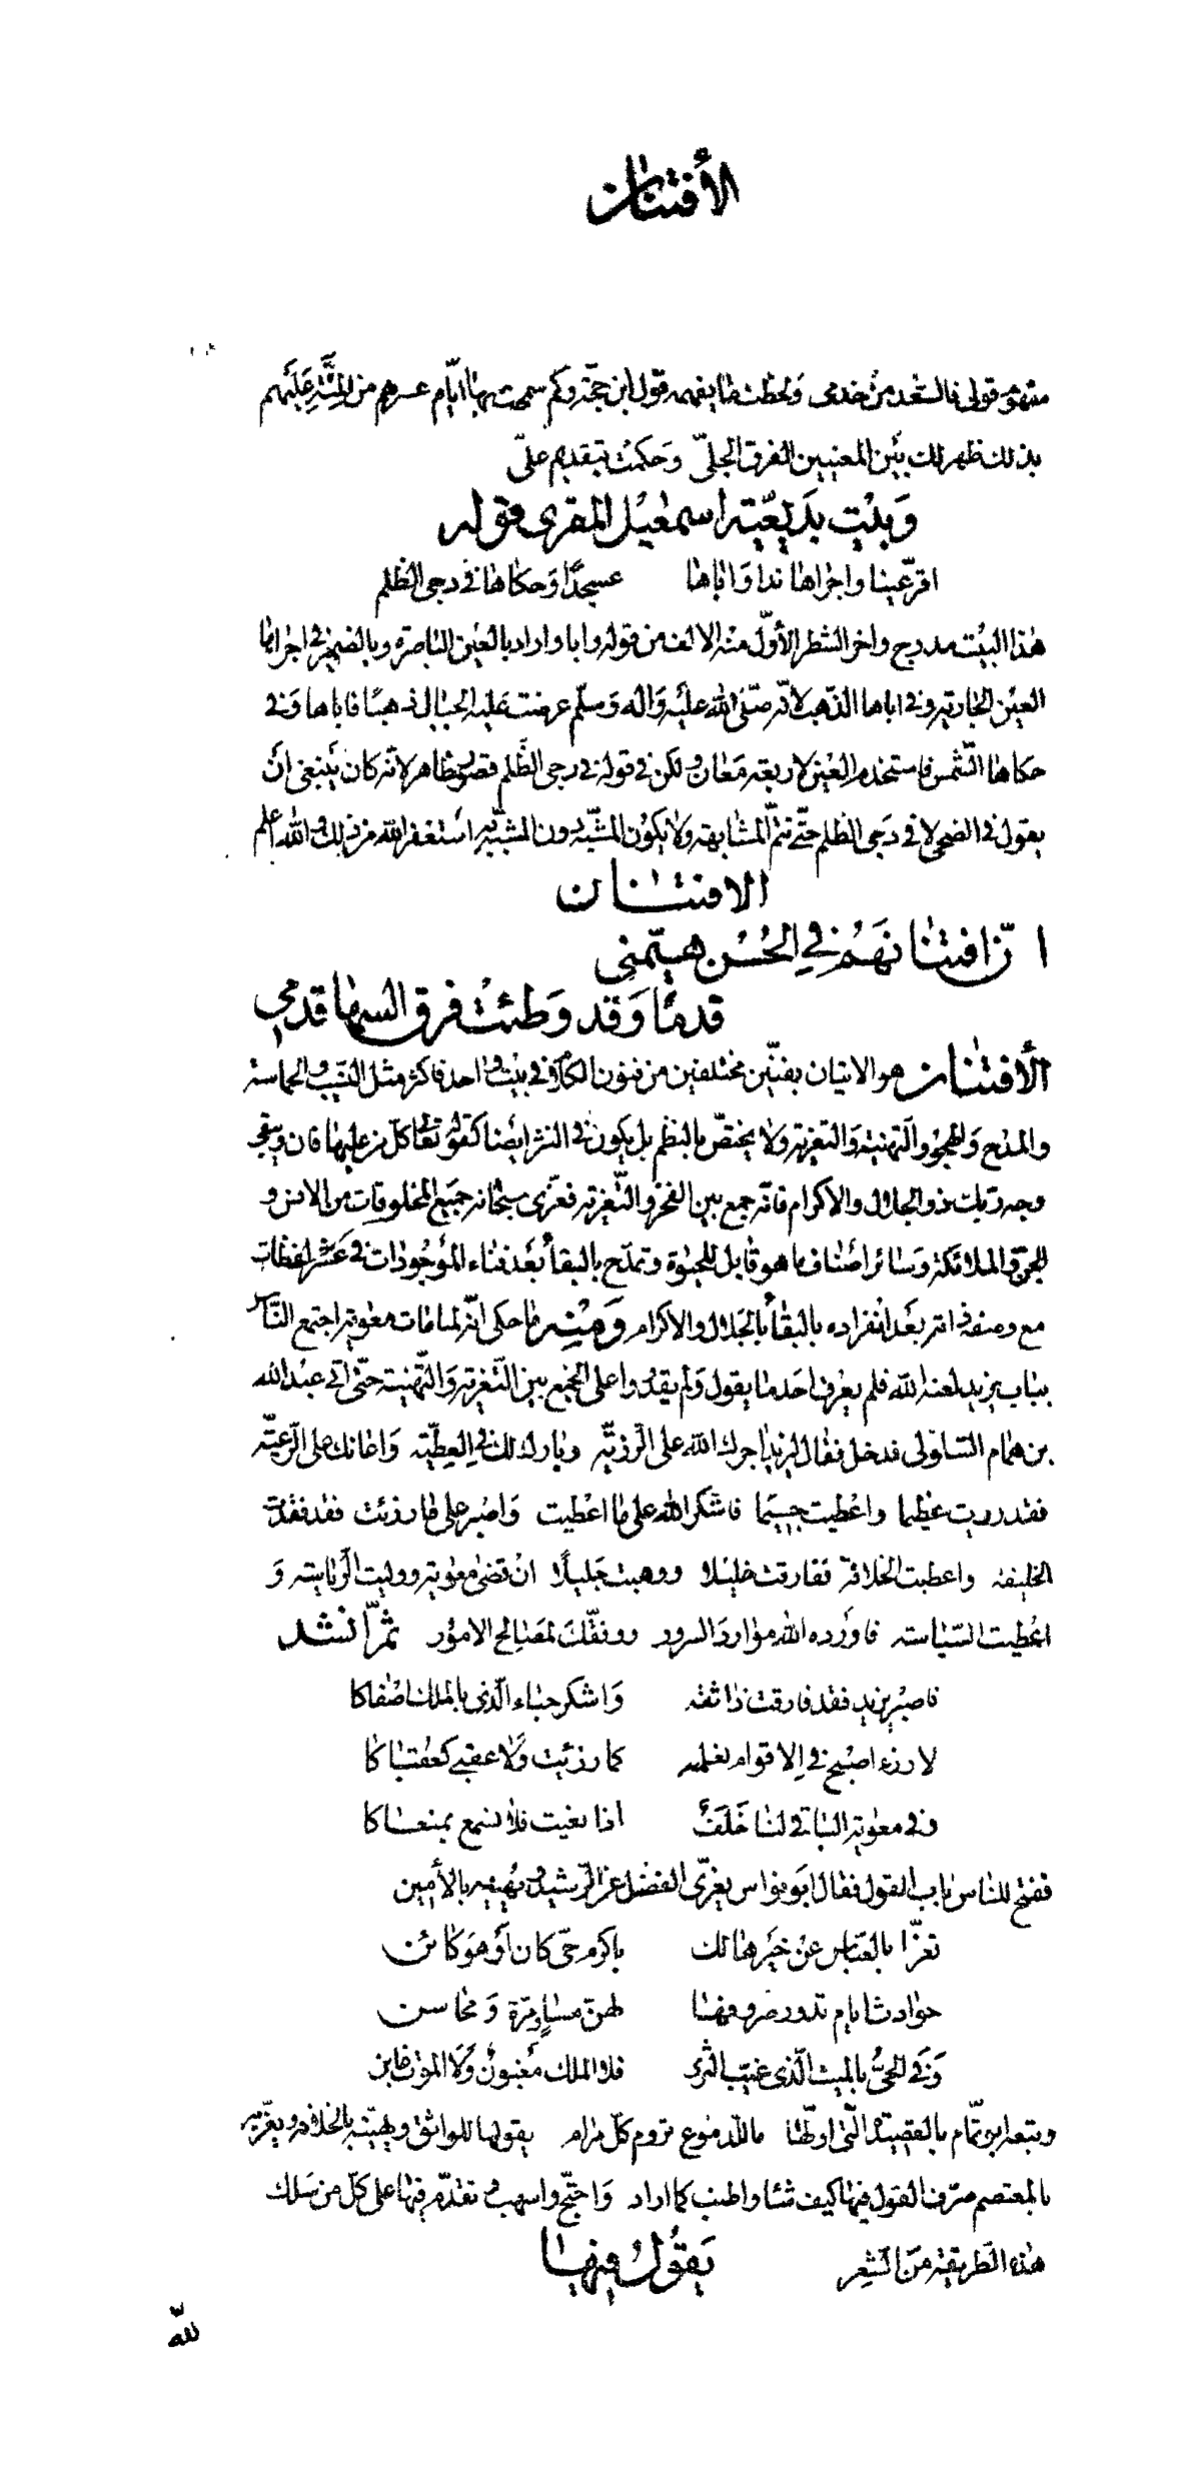 الأفتنان
مفهوم قولى فالسّعد من خدمى ولحظت ما يفهمه قول ابن حجّة وكم سمت بها ايّام عسرهم من المنّة عليهم
بذلك ظهر لك بين المعنيين الفرق الجلىّ وحكمت بتقديم علىّ
وبيت بديعيّة اسمعيل المقرى قوله
اقرّ عينا واجراها ندا واباها عسجدًا وحكاها فى دجى الظلم
هذا البيت مدرج واخر الشطر الأوّل منه الالف من قوله وابا واراد بالعين الباصرة وبالضمير فى اجراها
العين الجارية وفى اباها الذّهب لانّه صلّى الله عليه واله وسلّم عرضت عليه الجبال ذهبًا فاباها وفى
حكاها الشّمس فاستخدم العين لاربعة معان ولكن فى قوله فى دجى الظّلم قصور ظاهر لانه كان ينبغى أن
يقول فى الضحى لا فى دجى الظلم حتّى تتمّ المشابهة ولا يكون المشبّه دون المشبّه به استغفر الله من ذلك والله اعلم
الافتنان
انّ افتنانهم في الحُسن هيّمني
قدمًا وقد وطئتُ فرق السها قدمي
الأفتنان هو الاتيان بفنّين مختلفين من فنون الكلام فى بيت واحد فاكثر مثل النسيب والحماسة
والمدح والهجو والتهنية والتعزية ولا يختصّ بالنظم بل يكون فى النثر ايضا كقوله تعالى كلّ من عليها فان ويبقى
وجه ربّك ذو الجلال والاكرام فانّه جمع بين الفخر والتّعزية فعزّى سبحانه جميع المخلوقات من الانس و
الجنّ والملائكة وسائر اصناف ما هو قابل للحيوة وتمدّح بالبقأ بعد فناء الموجودات فى عشر لفظات
مع وصفه ذاته بعد انفراده بالبقأ بالجلال والاكرام ومنه ما حكى انّه لما مات معوية اجتمع النّاس
بباب يزيد لعنه الله فلم يعرف احد ما يقول ولم يقدروا على الجمع بين التّعزية والتّهنية حتّى اتى عبد الله
بن همام السّلولى فدخل فقال يا يزيد اجرك الله على الرّزيّة وبارك لك فى العطيّة واعانك على الرّعيّة
فقد رزيت عظيما واعطيت جسيما فاشكر الله على ما اعطيت واصبر على ما رزئت فقد فقدت
الخليفة واعطيت الخلافة ففارقت خليلا ووهبت جليلًا اذ قضى معوية ووليت الرّياسة و
اعطيت السّياسة فاورده الله موارد السرور ووفّقك لمصالح الامور ثمّ انشد
فاصبر يزيد فقد فارقت ذا ثقة واشكر حباء الّذى بالملك اصفاكا
لا رزء اصبح فى الاقوام نعلمه كما رزئت ولا عقبى كعقباكا
وفى معوية الباقى لنا خَلَفٌ اذا نعيت فلا نسمع بمنعاكا
ففتح للناس باب القول فقال ابو نواس يعزّى الفضل عن الرّشيد ويهنيه بالأمين
تعزّ ابا العبّاس عن خير هالك باكرم حىّ كان أو هو كائن
حوادث ايام تدور صروفها لهنّ مساو مرّة ومحاسن
وفى الحىّ بالميت الّذى غيّب الثّرى فلا الملك مغبون ولا الموت غابن
وتبعه ابو تمّام بالقصيدة الّتى اوّلها ما للدموع تروم كلّ مرام يقولها للواثق ويهنّيه بالخلافة ويعزّيه
بالمعتصم صرّف القول فيها كيف شاء واطنب كما اراد واحتجّ واسهب وتقدّم فيها على كلّ من سلك
هذه الطريقة من الشّعر يقول فيها
للّه